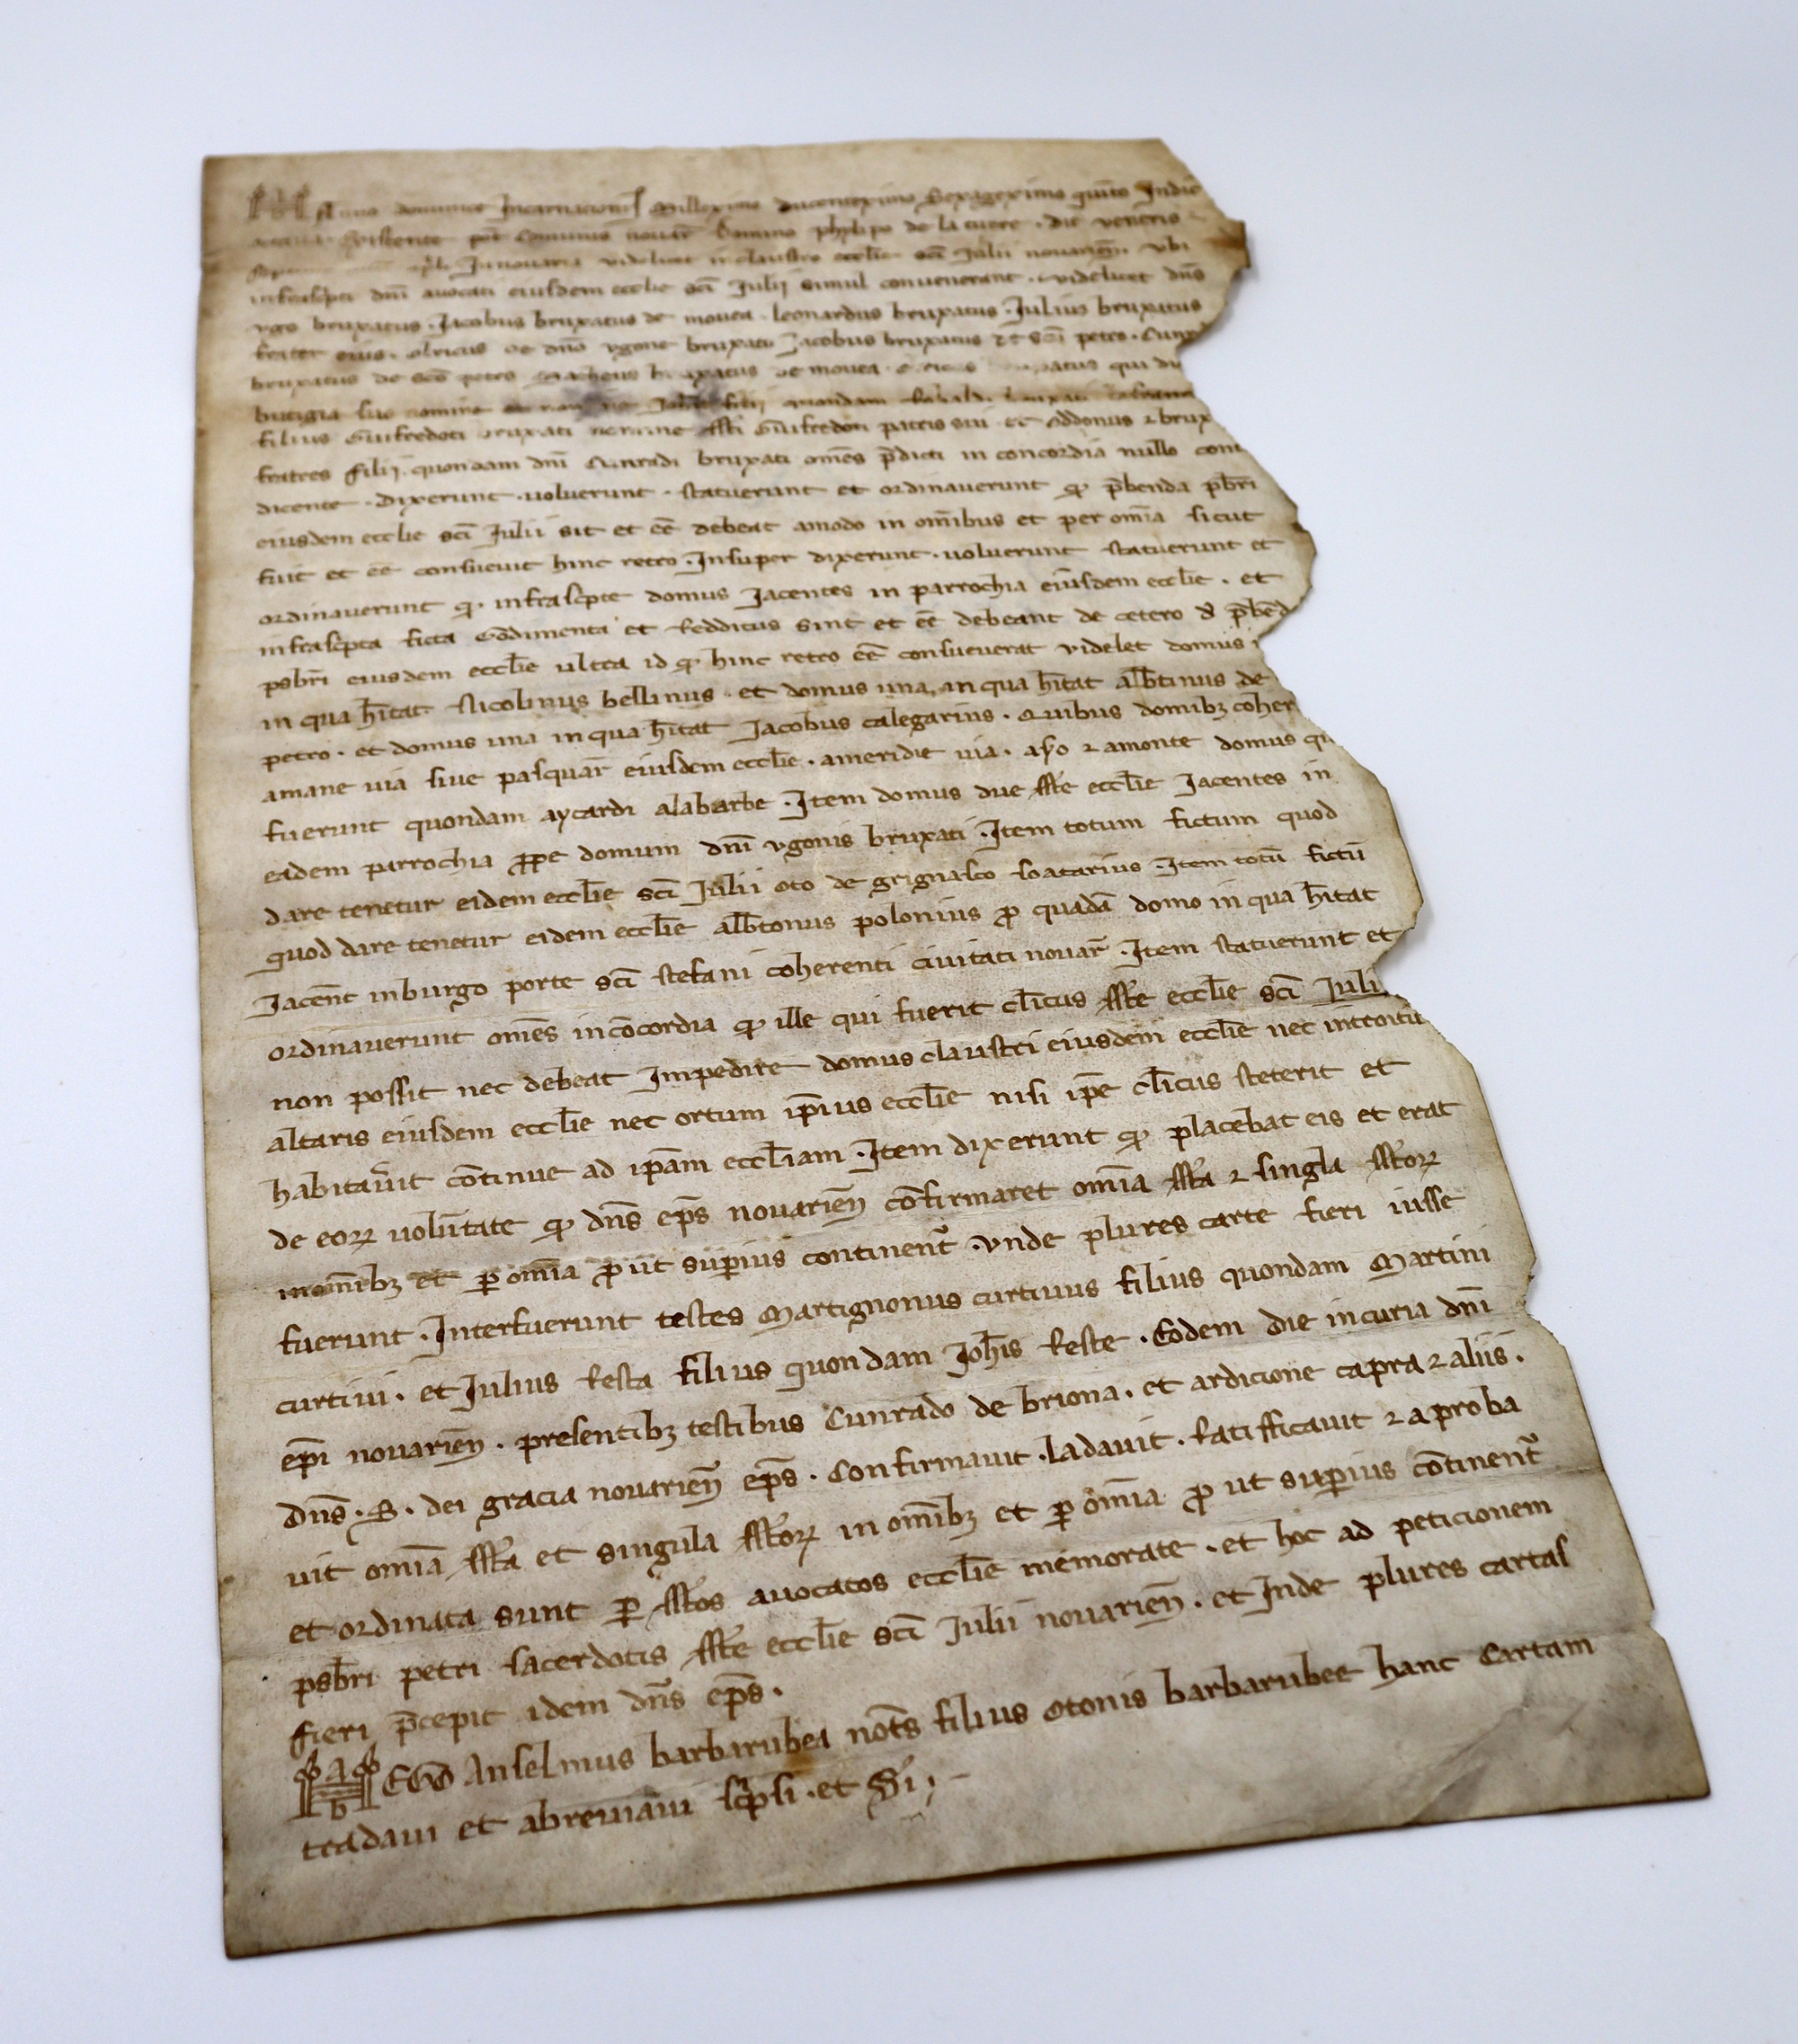 Anno dominice Incarnacionis Millesimo ducentesimo Sexagesimo quinto Indic
existente pot̄ Comunis nouar̄ domino phylipo de la turre · die veneris
In nouaria videlicet in claustro eccl̄ie sc̄i Julii nouarien̄ · vbi
infrasc̄pti dn̄i auocati eiusdem eccl̄ie sc̄i Julij simul conuenerant · videlicet dn̄s
vgo bruxatus · Jacobus bruxatus de mouea · leonardus bruxatus · Julius bruxatus
frater eius · de dn̄o vgone bruxato Jacobus bruxatus de sc̄o petro · Cunr
bruxatus de sc̄o petro bruxatus de mouea qui
butigia suo nomine filij quondam
filius Guifredoti bruxati nomine Guifredoti patris sui et Oddonus ⁊ brux
fratres filij quondam dn̄i Cunradi bruxati om̄es p̄dicti in concordia nullo cont
dicente · dixerunt · uoluerunt · statuerunt et ordinauerunt ꝙ p̄benda p̄br̄i
eiusdem eccl̄ie sc̄i Julii sit et ēē debeat amodo in om̄ibus et per om̄ia sicut
fuit et ēē consueuit hinc retro · Insuper dixerunt · uoluerunt statuerunt et
ordinauerunt ꝙ infrasc̄pte domus Jacentes in parrochia eiusdem eccl̄ie · et
infrasc̄pta ficta Godimenta et Redditus sint et ēē debeant de cetero d̄ p̄bēd
psbr̄i eiusdem eccl̄ie ultra id ꝙ hinc retro ēē consueuerat videlet domus
in qua h̄itat Nicolinus bellinus · et domus una in qua h̄itat alb̄tinus de
petro · et domus una in qua h̄itat Jacobus calegarius · Quibus domibꝫ coher
amane uia siue pasquar̄ eiusdem eccl̄ie · ameridie uia · aso ⁊ amonte domus qu
fuerunt quondam aycardi alabarbe · Item domus due sste eccl̄ie Jacentes in
eadem parrochia ꝓpe domum dn̄i vgonis bruxati · Item totum fictum quod
dare tenetur eidem eccl̄ie sc̄i Julii oto de grignasco soatarius · Item totū fictū
quod dare tenetur eidem eccl̄ie alb̄tonus polonius ꝓ quadā domo in qua h̄itat
Jacen̄t in burgo porte sc̄i stefani coherenti ciuitati nouar̄ · Item statuerunt et
ordinauerunt om̄es in cōcordia ꝙ ille qui fuerit cl̄icus sste eccl̄ie sc̄i Juli
non possit nec debeat Impedire domus claustri eiusdem eccl̄ie nec introitū
altaris eiusdem eccl̄ie nec ortum ip̄ius eccl̄ie nisi ip̄e cl̄icus steterit et
habitau̓it cōtinue ad ip̄am eccl̄iam · Item dixerunt ꝙ placebat eis et erat
de eoꝝ uolūtate ꝙ dn̄s ep̄s nouarien̄ cōfirmaret om̄ia ssta ⁊ singla sstoꝝ
in om̄ibꝫ et ꝑ om̄ia ꝓ ut sup̄ius continent̄ · vnde plures carte fieri iusse
fuerunt · Interfuerunt testes Martignonus curtiuus filius quondam Martini
curtiui · et Julius Resta filius quondam Joh̄is Reste · Eodem die in curia dn̄i
ep̄i nouarien̄ · presentibꝫ testibus Cunrado de briona · et ardicione capra ⁊ aliis ·
dn̄s · S · dei gracia nouarien̄ ep̄s · Confirmauit · ladauit · Ratifficauit ⁊ aproba
uit om̄ia ssta et singula sstoꝝ in om̄ibꝫ et ꝑ om̄ia ꝓ ut sup̄ius cōtinent̄
et ordinata sunt ꝑ sstos auocatos eccl̄ie memorate · et hoc ad peticionem
psbr̄i petri sacerdotis sste eccl̄ie sc̄i Julii nouarien̄ · et Inde plures cartas
fieri p̄cepit idem dn̄s ep̄s ·
EGO Anselmus barbarubea not̄s filius Otonis barbarubee hanc Cartam
tradaui et abreuiaui sc̄psi · et SSi ·